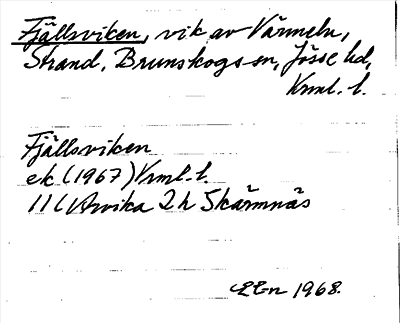 Fjällsviken, vik av Värmeln,
Strand, Brunskogs sn, Jösse hd,
Vrml. l.
Fjällsviken
ek (1967) Vrml. l.
11C Arvika 2h Skärmnäs
1968.